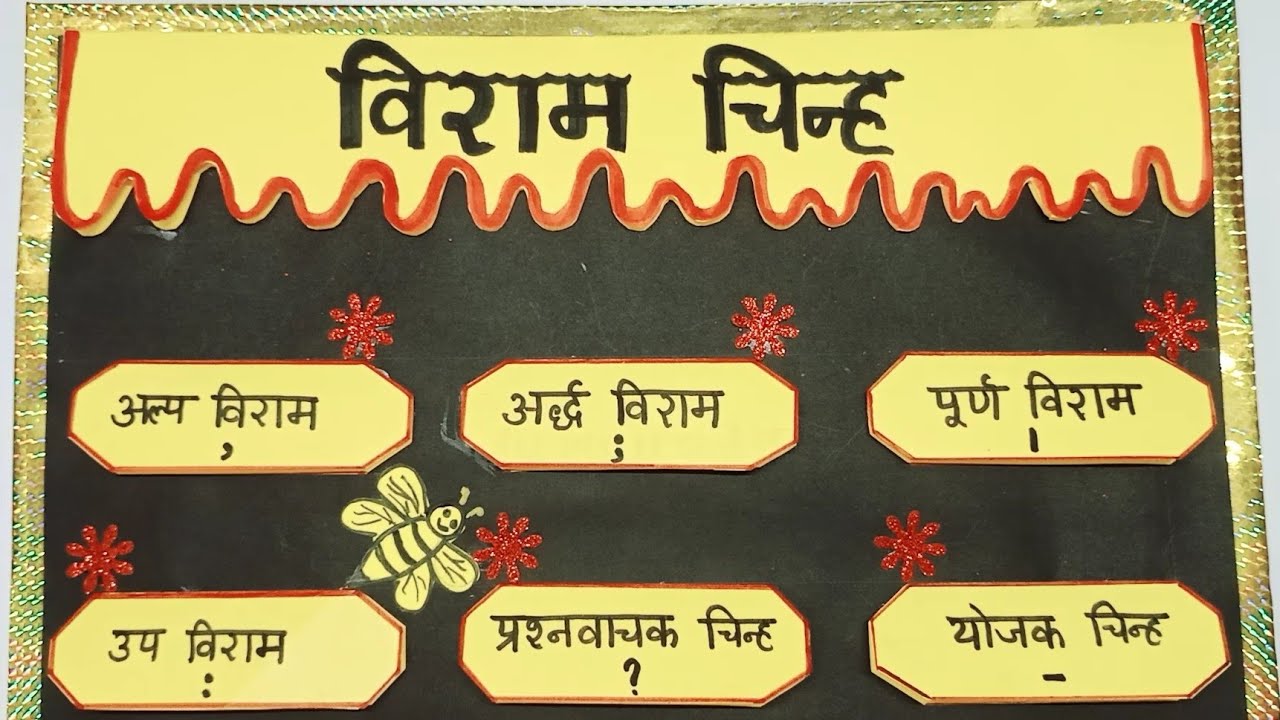 विराम चिन्ह
अल्प विराम
,
अर्द्ध विराम
;
पूर्ण विराम
।
उप विराम
:
प्रश्नवाचक चिन्ह
?
योजक चिन्ह
-